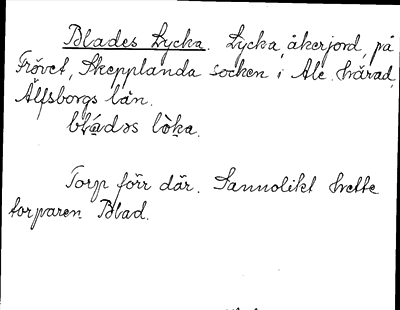 Blades Lycka. Lycka, åkerjord, på
Frövet, Skepplanda socken i Ale härad,
Älfsborgs län.
Torp förr där. Sannolikt hette
torparen Blad.